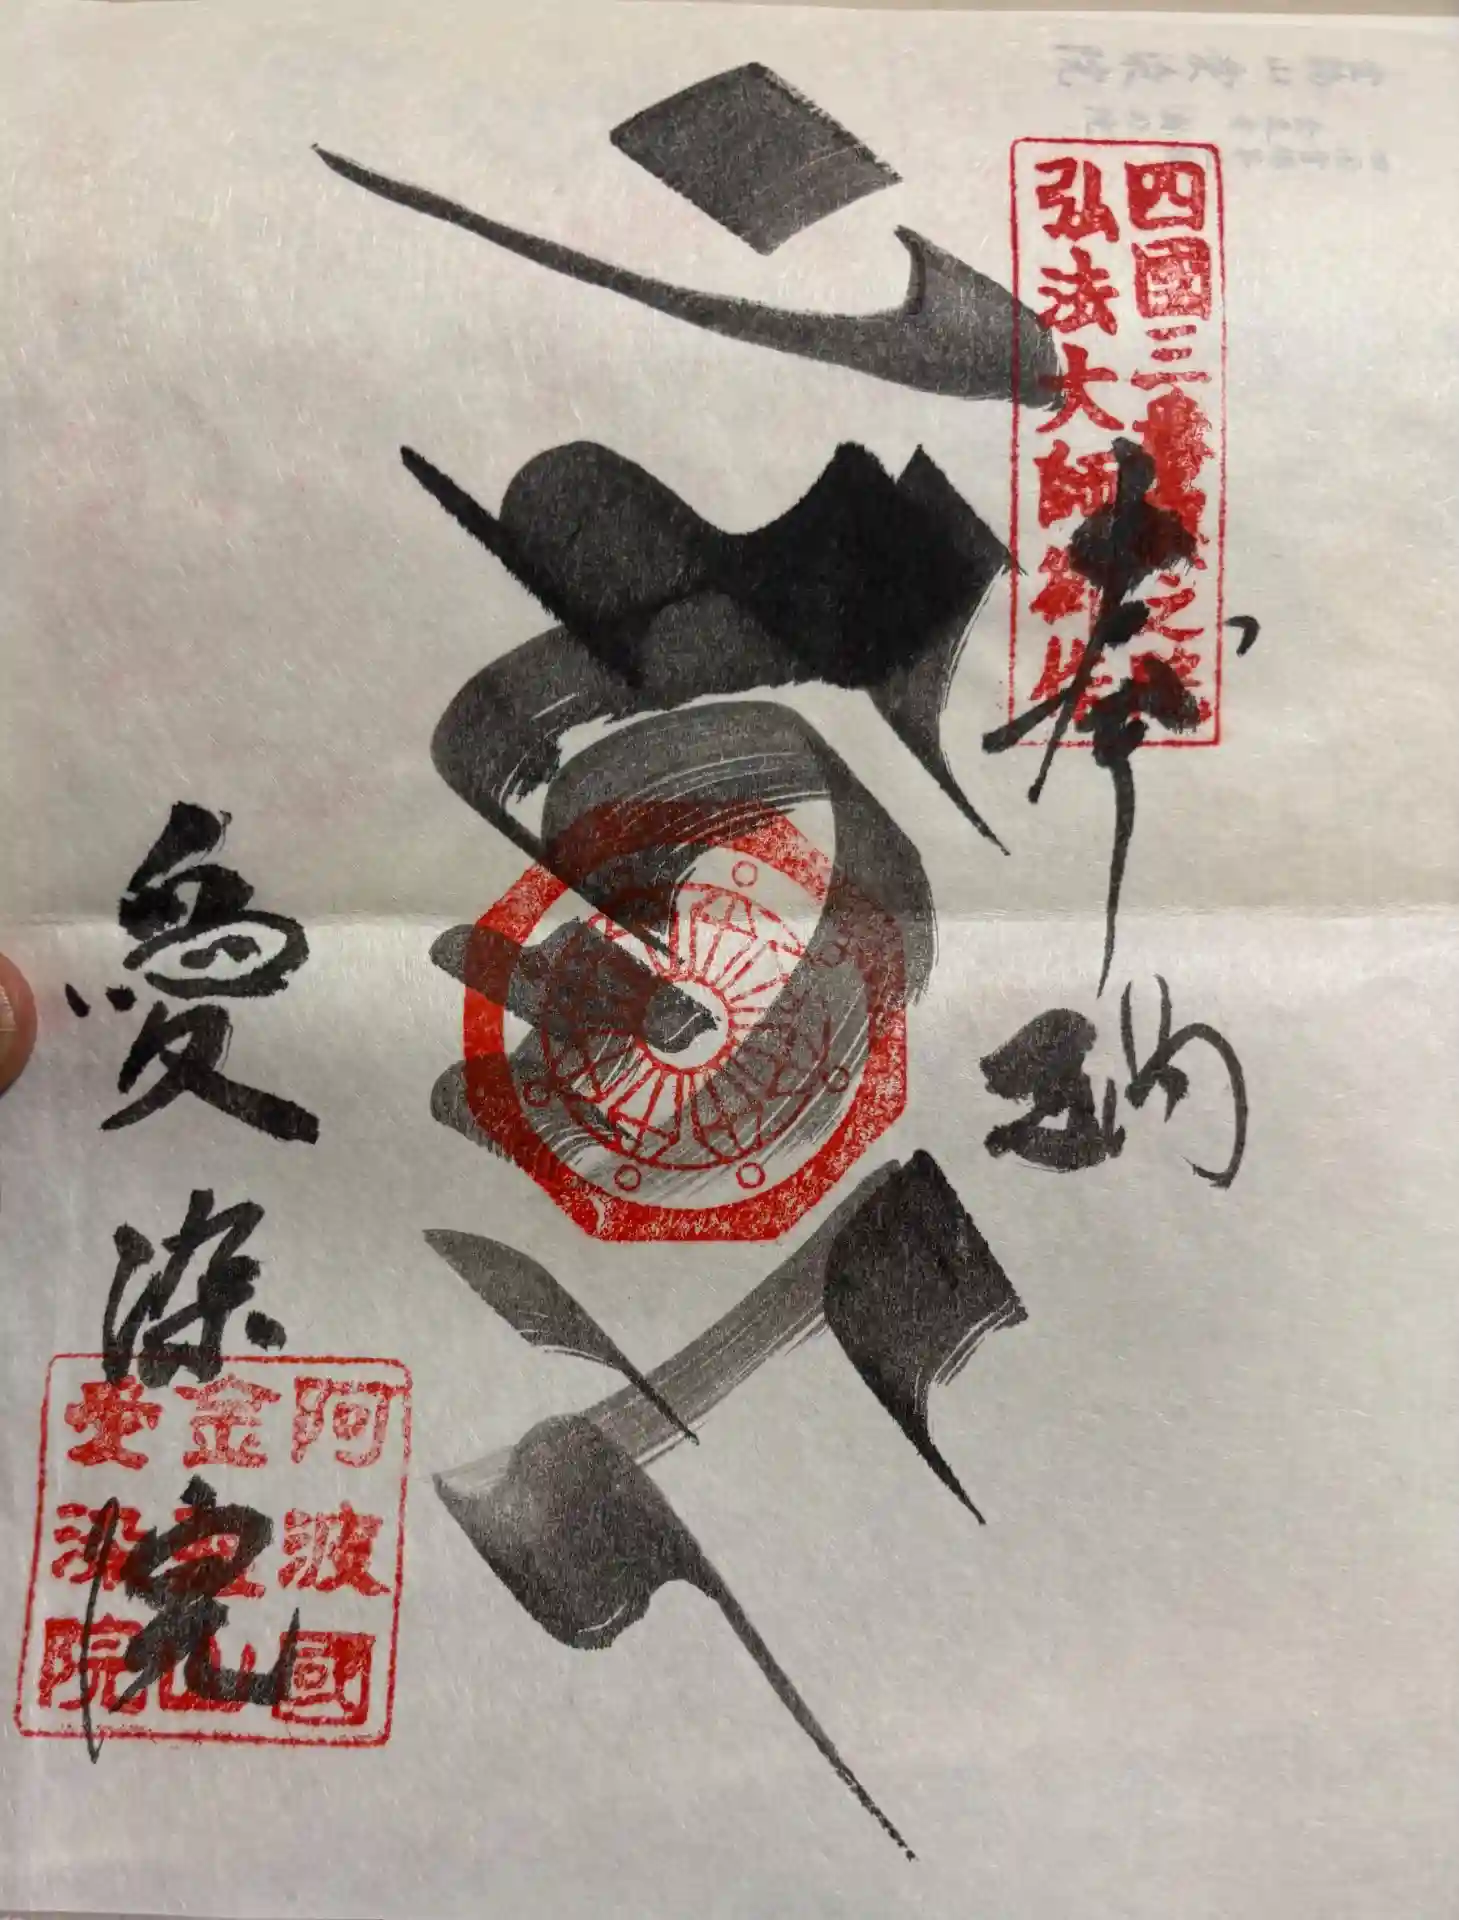 四國三番奥之院
弘法大師御作
奉納
愛染院
阿波國
金 山
愛染院